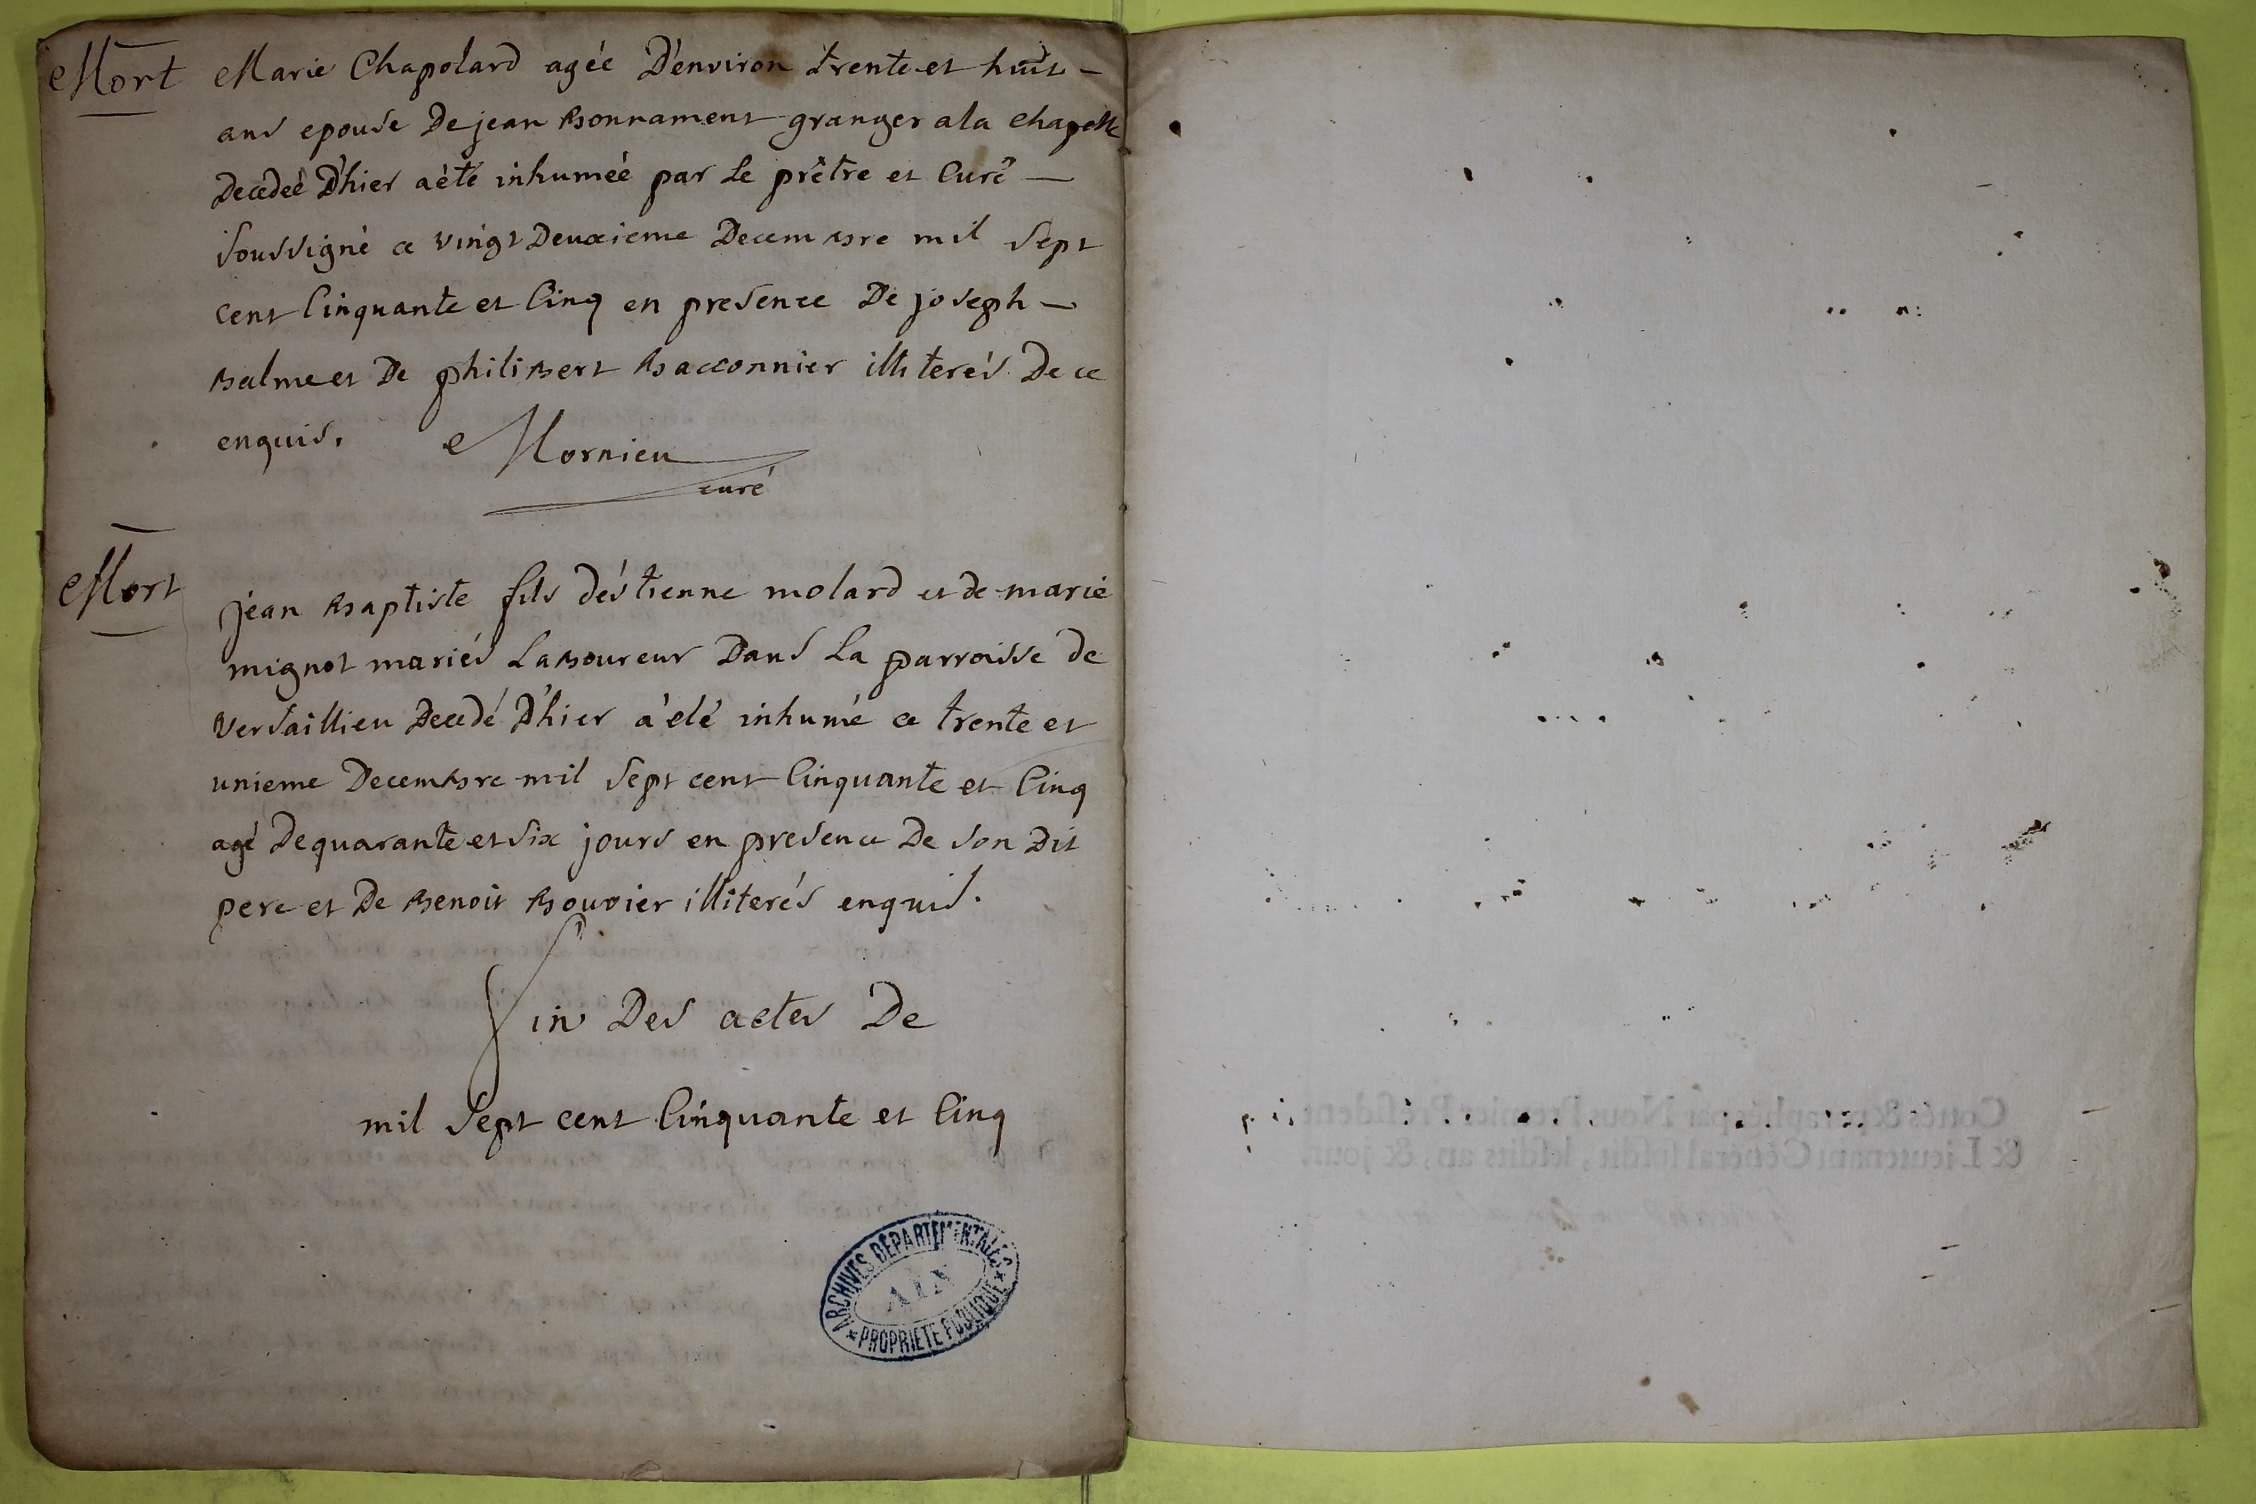 Mort
Marie Chapolard agée D'environ trente et huit -
ans epouse De jean Bonnament granger a la Chapelle
Decedeé D'hier a été inhumeé par Le prêtre et Curé -
soussigné ce vingt Deuxieme Decembre mil sept
cent Cinquante et Cinq en presence De joseph -
Balme et De philibert Bacconnier illiterés De ce
enquis. Mornieu
curé
Mort
jean Baptiste fils d'éstienne molard et de marie
mignot mariés Laboureur Dans La parroisse de
Versaillieu Decedé D'hier a été inhumé ce trente et
unieme Decembre mil sept cent Cinquante et Cinq
agé De quarante et six jours en presence De son Dit
pere et De Benoit Bouvier illiterés enquis.
Fin Des actes De
mil sept cent Cinquante et Cinq
ARCHIVES DÉPARTEMENTALES
AIN
* PROPRIETE PUBLIQUE *
Cottés & paraphés par Nous Premier Président
& Lieutenant Général susdit, lesdits an, & jour.